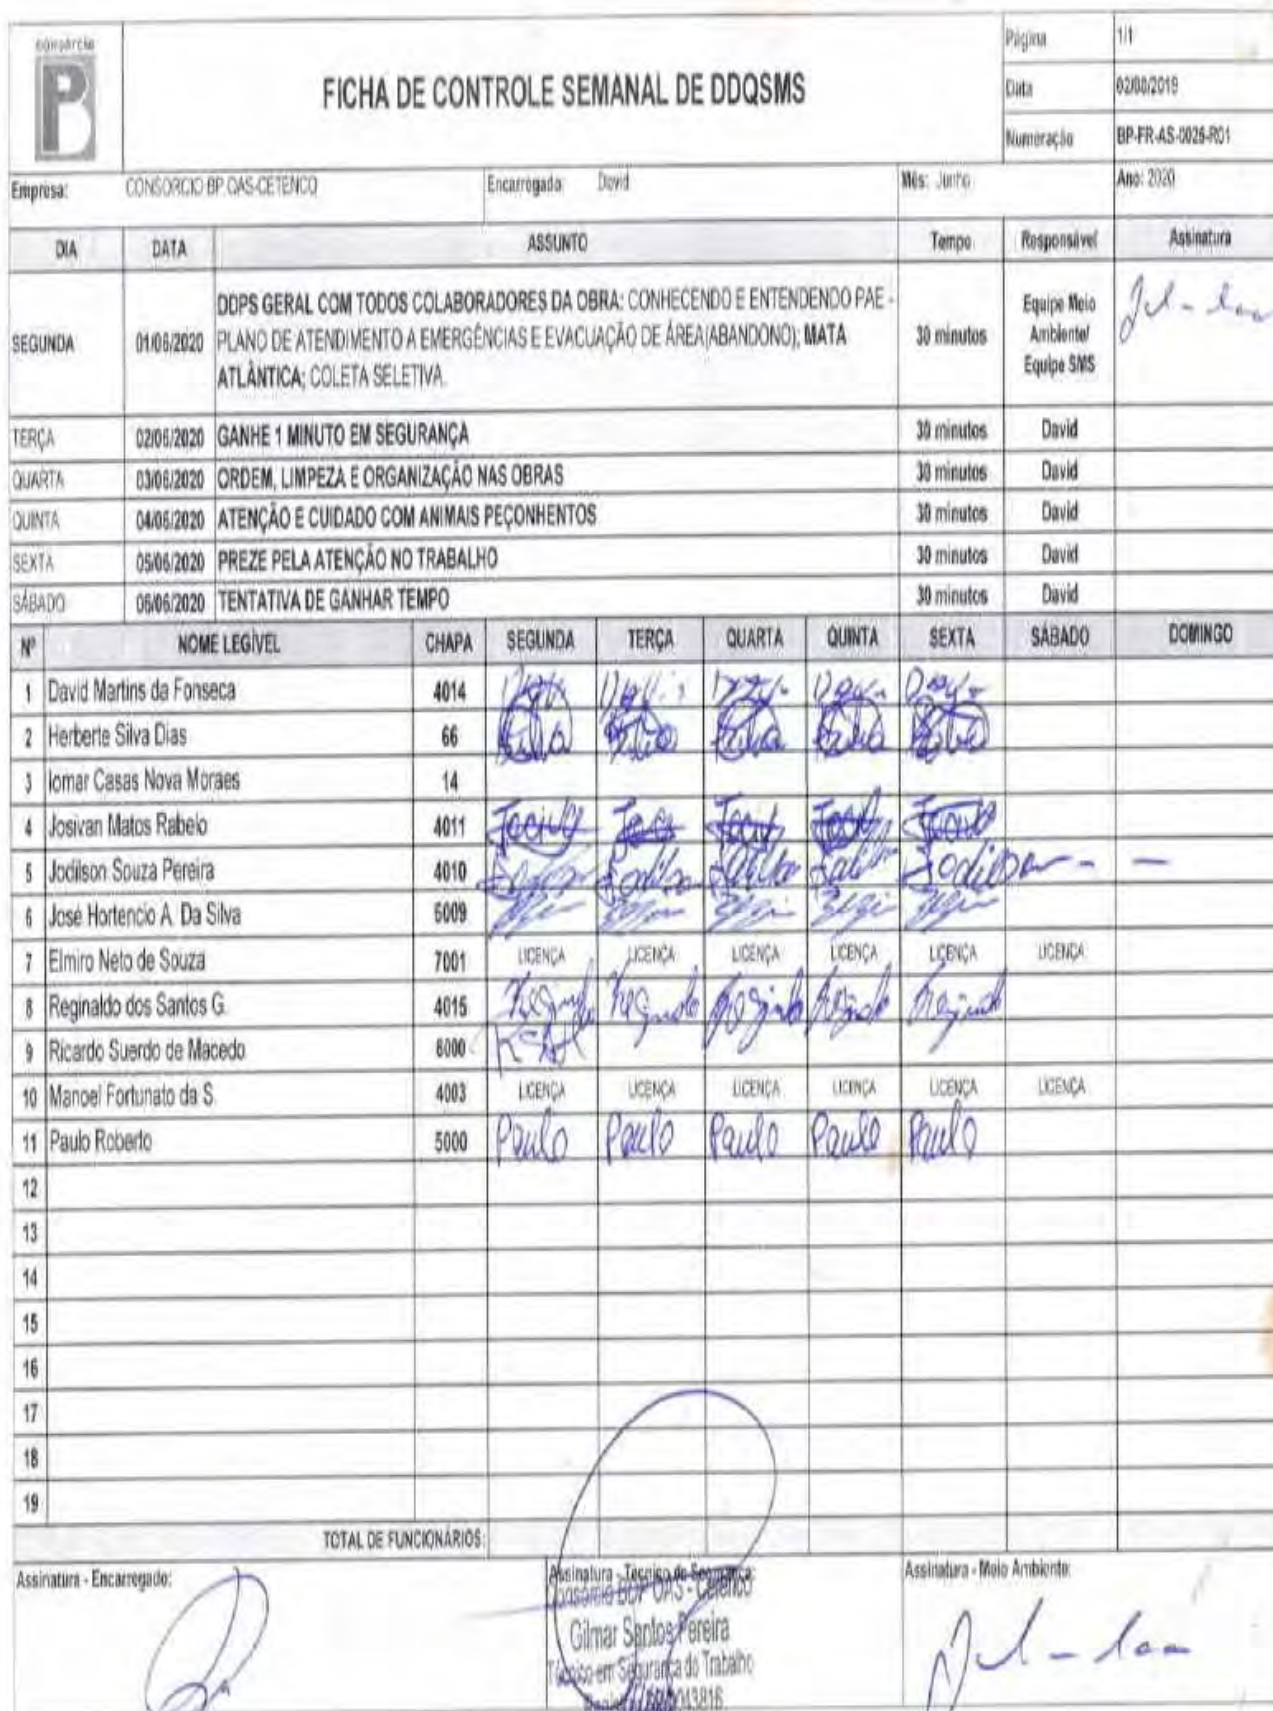 consórcio
BP
FICHA DE CONTROLE SEMANAL DE DDQSMS
Página 1/1
Data 02/08/2019
Numeração BP-FR-AS-0026-R01
Empresa: CONSORCIO BP OAS-CETENCO Encarregado: David Mês: Junho Ano: 2020
DIA DATA ASSUNTO Tempo Responsável Assinatura
SEGUNDA 01/06/2020 DDPS GERAL COM TODOS COLABORADORES DA OBRA: CONHECENDO E ENTENDENDO PAE -
PLANO DE ATENDIMENTO A EMERGÊNCIAS E EVACUAÇÃO DE ÁREA(ABANDONO); MATA
ATLÂNTICA; COLETA SELETIVA.
30 minutos
Equipe Meio
Ambiente/
Equipe SMS
TERÇA 02/06/2020 GANHE 1 MINUTO EM SEGURANÇA 30 minutos David
QUARTA 03/06/2020 ORDEM, LIMPEZA E ORGANIZAÇÃO NAS OBRAS 30 minutos David
QUINTA 04/06/2020 ATENÇÃO E CUIDADO COM ANIMAIS PEÇONHENTOS 30 minutos David
SEXTA 05/06/2020 PREZE PELA ATENÇÃO NO TRABALHO 30 minutos David
SÁBADO 06/06/2020 TENTATIVA DE GANHAR TEMPO 30 minutos David
Nº NOME LEGÍVEL CHAPA SEGUNDA TERÇA QUARTA QUINTA SEXTA SÁBADO DOMINGO
1 David Martins da Fonseca 4014
2 Herberte Silva Dias 66
3 Iomar Casas Nova Moraes 14
4 Josivan Matos Rabelo 4011
5 Jodilson Souza Pereira 4010 Jodilson
6 José Hortencio A. Da Silva 6009
7 Elmiro Neto de Souza 7001 LICENÇA LICENÇA LICENÇA LICENÇA LICENÇA LICENÇA
8 Reginaldo dos Santos G. 4015
9 Ricardo Suerdo de Macedo 6000
10 Manoel Fortunato da S. 4003 LICENÇA LICENÇA LICENÇA LICENÇA LICENÇA LICENÇA
11 Paulo Roberto 5000 Paulo Paulo Paulo Paulo Paulo
12
13
14
15
16
17
18
19
TOTAL DE FUNCIONÁRIOS:
Assinatura - Encarregado: Assinatura - Técnico de Segurança: Assinatura - Meio Ambiente:
Gilmar Santos Pereira
Técnico em Segurança do Trabalho